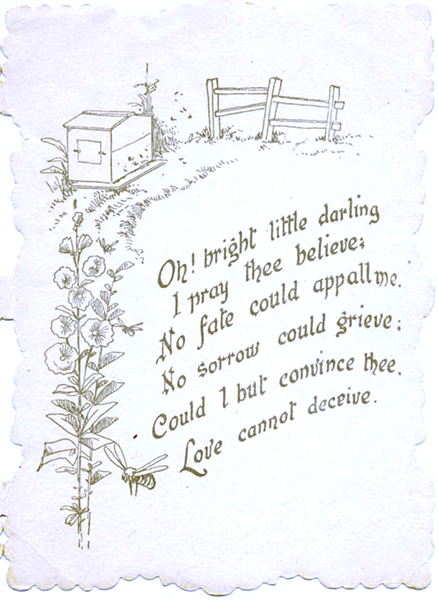 Oh! bright little darling
I pray thee believe;
No fate could appall me.
No sorrow could grieve;
Could I but convince thee.
Love cannot deceive.